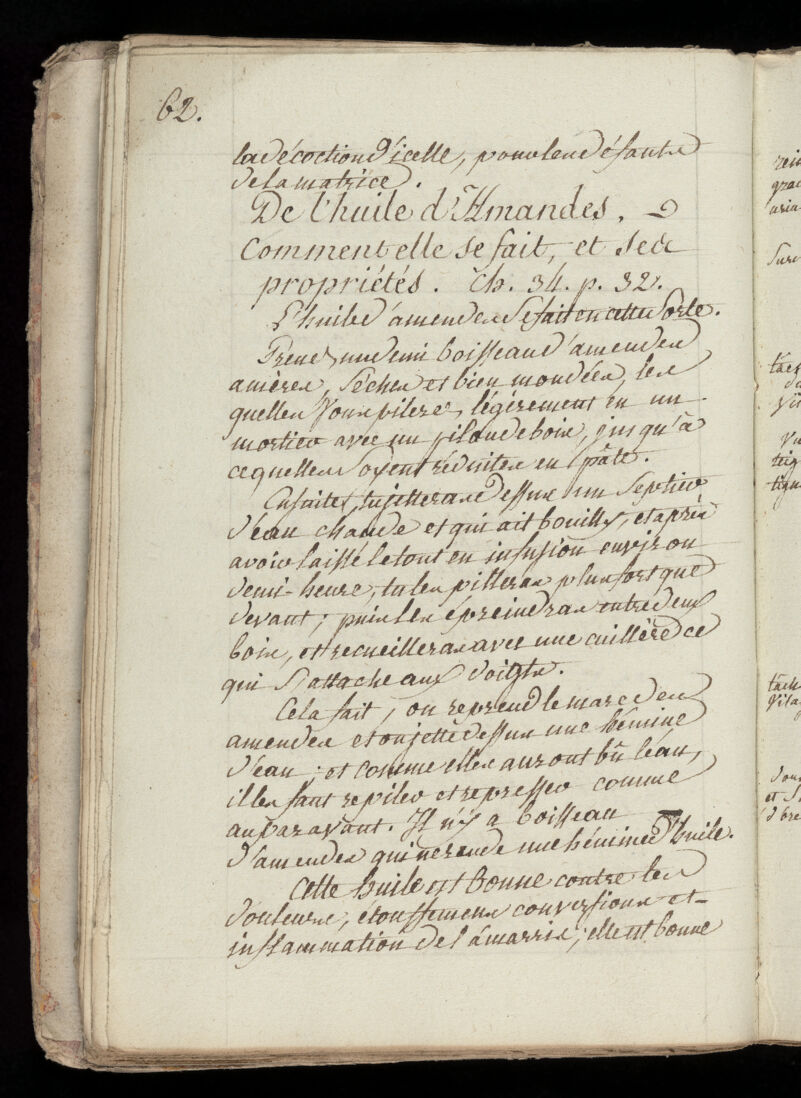 62.
la décoction d'icelle, pour les défauts
de la matrice.
De l'huile d'Amandes.
Comment elle se fait, et ses
propriétés. Ch. 34. p. 32.
L'huile d'amendes se fait en cette sorte.
Prenez un demi boisseau d'amendes
amères, séches et bien mondées, les
quelles vous pilerez légérement en un
mortier avec un pilon de bois, jusqu'à
ce quelles soyent réduites en pâte.
Ensuite, tu jetteras dessus un septier
d'éau chaude et qui ait bouilly, et après
avoir laissé le tout en infusion environ
demi-heure, tu les pilleras plus fort que
devant; puis les épreindras entre deux
bois, et recueilleras avec une cuillère ce
qui s'attache aux doigts.
Cela fait, on reprend le marc des
amendes et on jette dessus une hémine
d'éau; et comme elles auront bû l'éau,
il les faut repiler et represser comme
auparavant. Il n'y a boisseau
d'amendes qui ne rende une hémine d'huile.
Cette huile est bonne contre les
douleurs, étouffemens conversions et
inflammation de l'amarris; elle est bonne